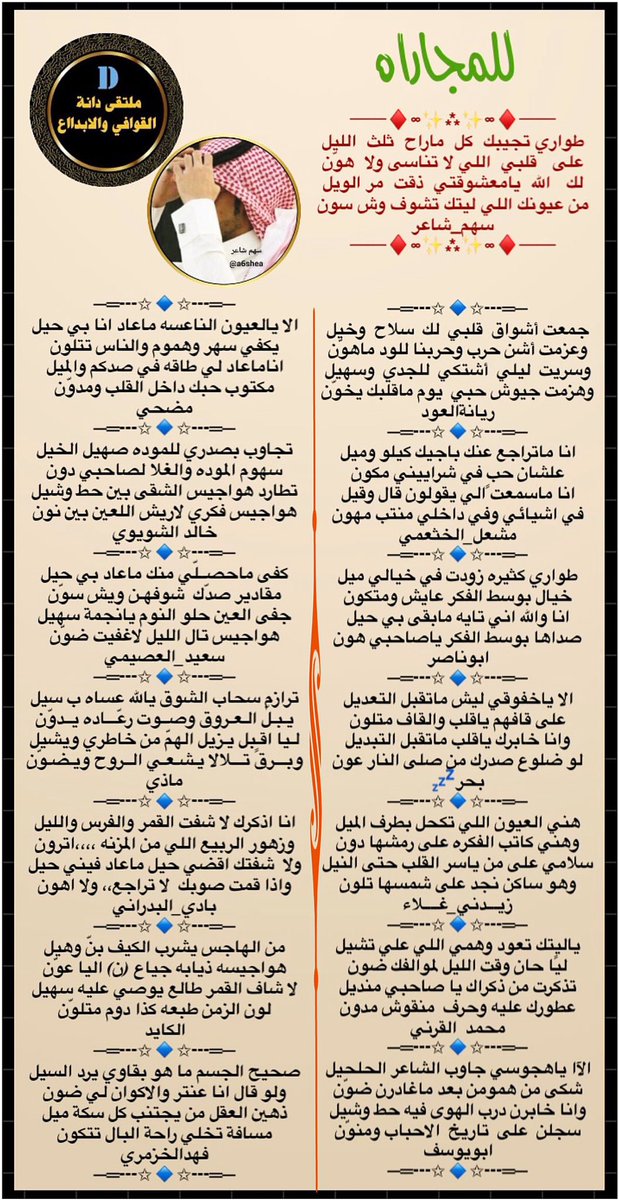 للمجاراه
D
ملتقى دانة
القوافي والابدااع
طواري تجيبك كل ماراح ثلث الليل
على قلبي اللي لا تناسى ولا هون
لك الله يامعشوقتي ذقت مر الويل
من عيونك اللي ليتك تشوف وش سون
سهم_شاعر
سهم شاعر
@a6shea
جمعت أشواق قلبي لك سلاح وخيل
وعزمت أشن حرب وحربنا للود ماهون
وسريت ليلي أشتكي للجدي وسهيل
وهزمت جيوش حبي يوم ماقلبك يخون
ريانةالعود
انا ماتراجع عنك باجيك كيلو وميل
علشان حب في شراييني مكون
انا ماسمعت ًالي يقولون قال وقيل
في اشيائي وفي داخلي منتب مهون
مشعل_الخثعمي
طواري كثيره زودت في خيالي ميل
خيال بوسط الفكر عايش ومتكون
انا والله اني تايه مابقى بي حيل
صداها بوسط الفكر ياصاحبي هون
ابوناصر
الا ياخفوقي ليش ماتقبل التعديل
على قافهم ياقلب والقاف متلون
وانا خابرك ياقلب ماتقبل التبديل
لو ضلوع صدرك من صلى النار عون
بحر💤
هني العيون اللي تكحل بطرف الميل
وهني كاتب الفكره على رمشها دون
سلامي على من ياسر القلب حتى النيل
وهو ساكن نجد على شمسها تلون
زيـــدني_غـــــلاء
ياليتك تعود وهمي اللي علي تشيل
ليّا حان وقت الليل لموالفك ضون
تذكرت من ذكراك يا صاحبي منديل
عطورك عليه وحرف منقوش مدون
محمد القرني
الآا ياهجوسي جاوب الشاعر الحلحيل
شكى من همومن بعد ماغادرن ضوّن
وانا خابرن درب الهوى فيه حط وشيل
سجلن على تاريخ الاحباب ومنوّن
ابويوسف
الا يالعيون الناعسه ماعاد انا بي حيل
يكفي سهر وهموم والناس تتلون
اناماعاد لي طاقه في صدكم والميل
مكتوب حبك داخل القلب ومدوّن
مضحي
تجاوب بصدري للموده صهيل الخيل
سهوم الموده والغلا لصاحبي دون
تطارد هواجيس الشقى بين حط وشيل
هواجيس فكري لاريش اللعين بين نون
خالد الشويوي
كفى ماحصـلّي منك ماعاد بي حيل
مقادير صدك شوفهن ويش سوّن
جفى العين حلو النوم يانجمة سهيل
هواجيس تال الليل لاغفيت ضوّن
سعيد_العصيمي
ترازم سحاب الشوق يالله عساه ب سيل
يبـلّ العـروق وصـوت رعّـاده يـدوّن
ليـا اقبـل يـزيل الهمّ من خاطري ويشيل
وبــرقٍ تــلالا يشـعـي الـروح ويضـوّن
ماذي
انا اذكرك لا شفت القمر والفرس والليل
وزهور الربيع اللي من المزنه ،،،،اترون
ولا شفتك اقضي حيل ماعاد فيني حيل
واذا قمت صوبك لا تراجع،، ولا اهون
بادي_البدراني
من الهاجس يشرب الكيف بنّ وهيل
هواجيسه ذيابه جياع (ن) اليا عوّن
لا شاف القمر طالع يوصي عليه سهيل
لون الزمن طبعه كذا دوم متلوّن
الكايد
صحيح الجسم ما هو بقاوي يرد السيل
ولو قال انا عنتر والاكوان لي ضون
ذهين العقل من يجتنب كل سكة ميل
مسافة تخلي راحة البال تتكون
فهدالخزمري